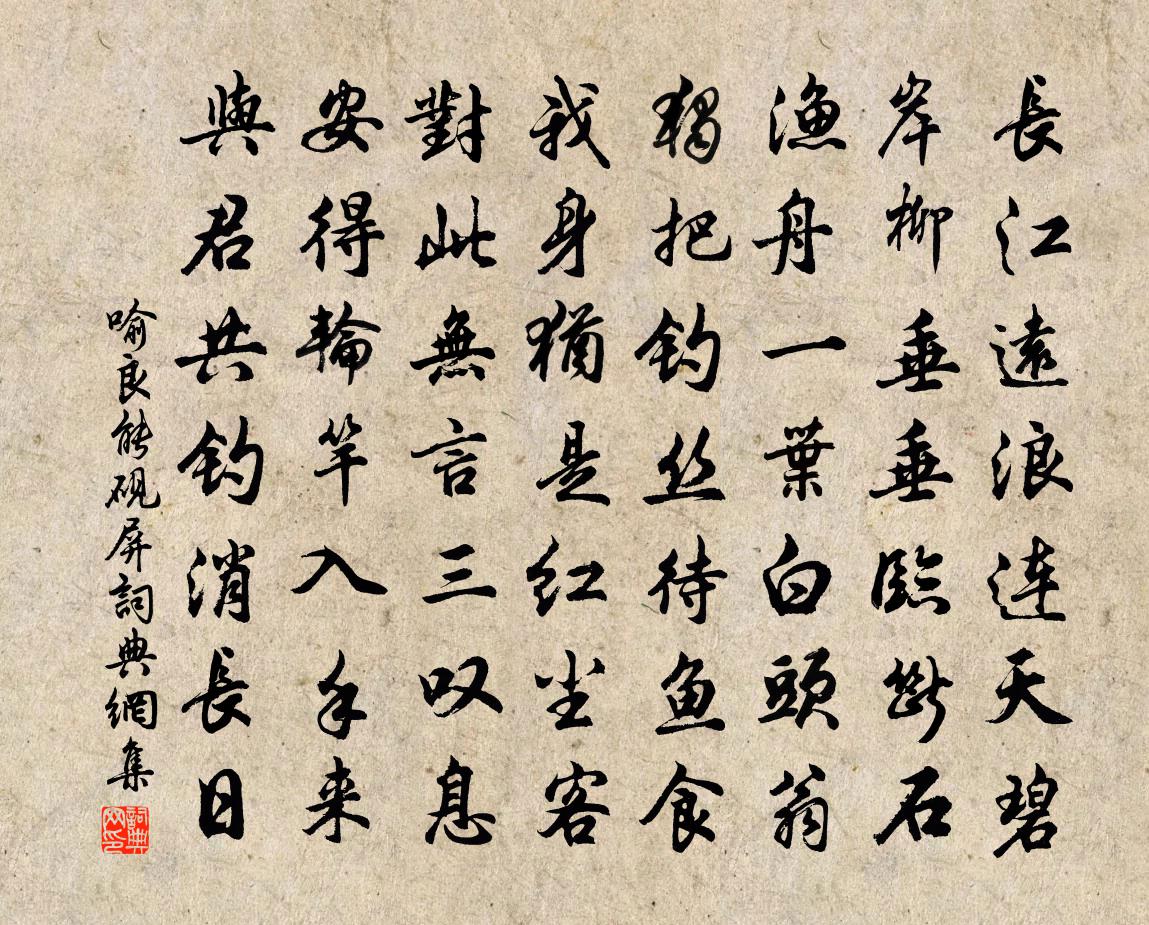 長江遠浪連天碧
岸柳垂垂臨斷石
漁舟一葉白頭翁
獨把釣絲待魚食
我身猶是紅塵客
對此無言三叹息
安得輪竿入手来
與君共釣消長日
喻良能硯屏詞典網集
詞典网印